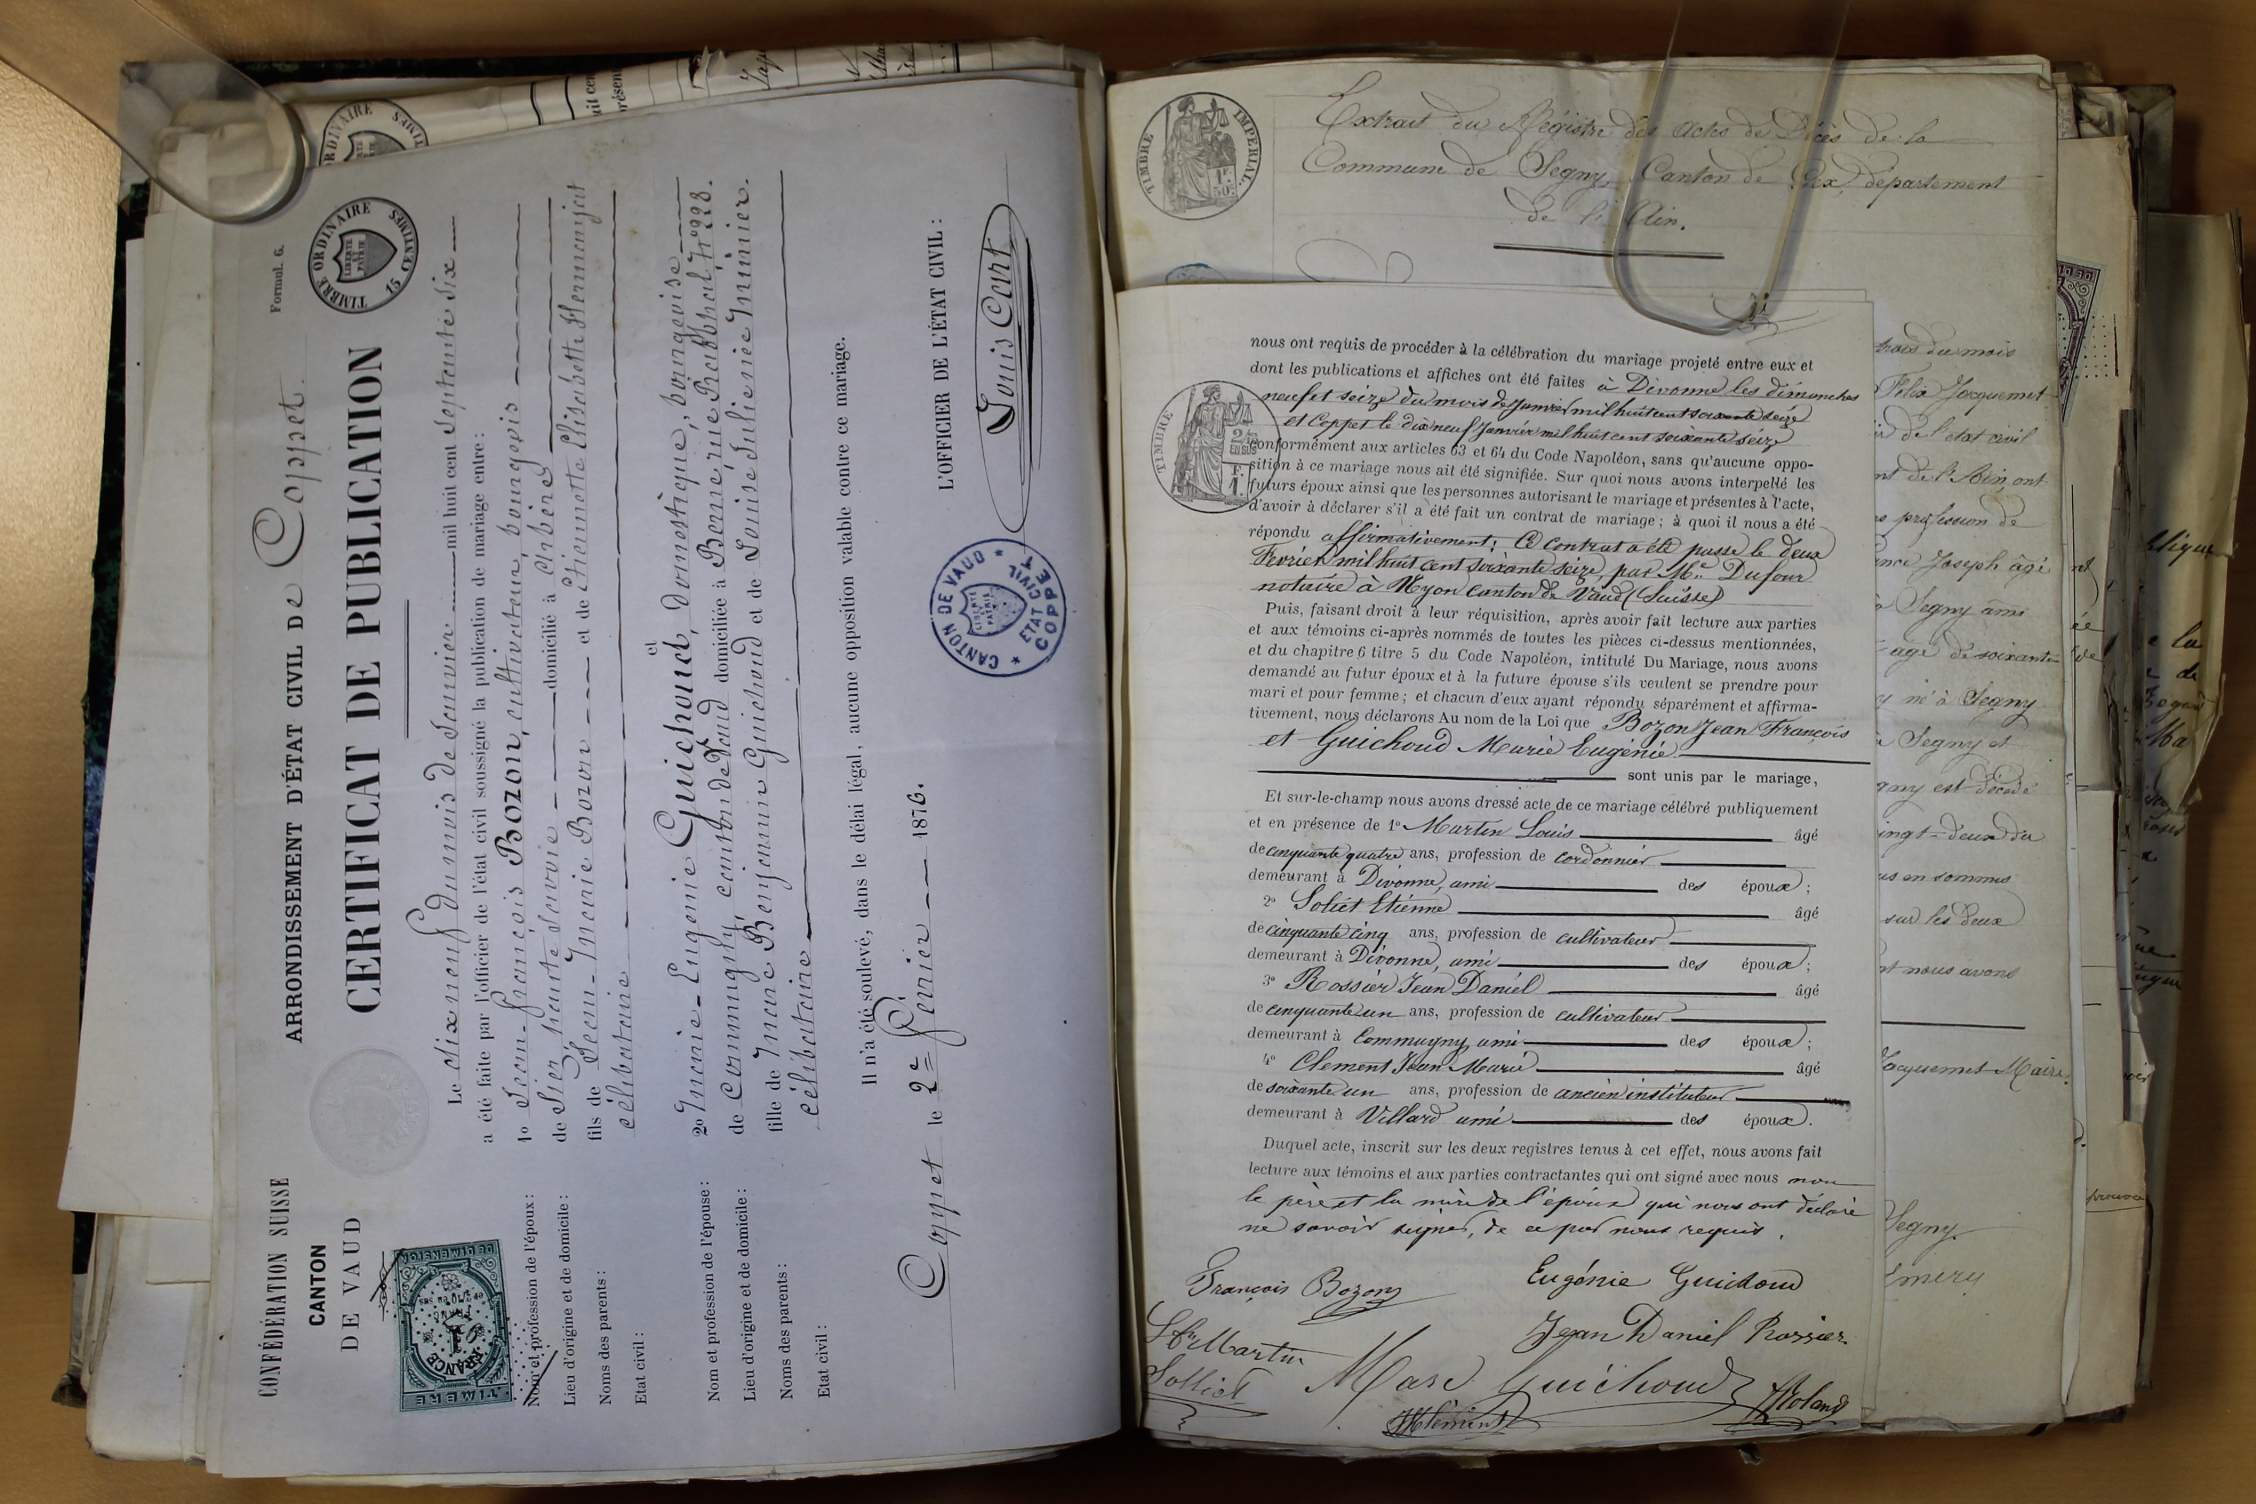 CONFÉDÉRATION SUISSE
CANTON
DE VAUD
Forml. 6.
ARRONDISSEMENT D'ÉTAT CIVIL DE Coppet.
TIMBRE ORDINAIRE 15 CENTIMES
LIBERTÉ ET PATRIE
CERTIFICAT DE PUBLICATION
Le dix neuf du mois de Janvier mil huit cent septante six
a été faite par l'officier de l'état civil soussigné la publication de mariage entre :
Nom et profession de l'époux : 1o Jean-François Bozon, cultivateur, bourgeois
Lieu d'origine et de domicile : de domicilié à
Noms des parents : fils de Jean-Marie Bozon et de
Etat civil : célibataire
et
Nom et profession de l'épouse : 2o Marie-Eugénie Guichoud, domestique, bourgeoise
Lieu d'origine et de domicile : de Commugny, canton de Vaud domiciliée à
Noms des parents : fille de Marc Benjamin Guichoud et de Louise Julie née
Etat civil : célibataire
Il n'a été soulevé, dans le délai légal, aucune opposition valable contre ce mariage.
Coppet le 2e Février 1876.
L'OFFICIER DE L'ÉTAT CIVIL :
Louis Cart
CANTON DE VAUD
ETAT CIVIL
COPPET
TIMBRE IMPÉRIAL
Extrait du Régistre des actes de Décès de la
Commune de Segny, Canton de Gex, département
de l'Ain.
nous ont requis de procéder à la célébration du mariage projeté entre eux et
dont les publications et affiches ont été faites à Divonne les dimanches
neuf et seize du mois de Janvier mil huit cent soixante seize
et Coppet le dix neuf Janvier mil huit cent soixante seize
conformément aux articles 63 et 64 du Code Napoléon, sans qu'aucune oppo-
sition à ce mariage nous ait été signifiée. Sur quoi nous avons interpellé les
futurs époux ainsi que les personnes autorisant le mariage et présentes à l'acte,
d'avoir à déclarer s'il a été fait un contrat de mariage ; à quoi il nous a été
répondu affirmativement : Ce contrat a été passé le deux
Fevrier mil huit cent soixante seize, par Me Dufour
notaire à Nyon canton de Vaud (Suisse)
Puis, faisant droit à leur réquisition, après avoir fait lecture aux parties
et aux témoins ci-après nommés de toutes les pièces ci-dessus mentionnées,
et du chapitre 6 titre 5 du Code Napoléon, intitulé Du Mariage, nous avons
demandé au futur époux et à la future épouse s'ils veulent se prendre pour
mari et pour femme ; et chacun d'eux ayant répondu séparément et affirma-
tivement, nous déclarons Au nom de la Loi que Bozon Jean François
et Guichoud Marie Eugénie
sont unis par le mariage,
Et sur-le-champ nous avons dressé acte de ce mariage célébré publiquement
et en présence de 1o Martin Louis âgé
de cinquante quatre ans, profession de cordonnier
demeurant à Divonne, ami des époux ;
2o Soliet Etienne âgé
de cinquante cinq ans, profession de cultivateur
demeurant à Divonne, ami des époux ;
3o Rossier Jean Daniel âgé
de cinquante un ans, profession de cultivateur
demeurant à Commugny ami des époux ;
4o Clement Jean Marie âgé
de soixante un ans, profession de ancien instituteur
demeurant à Villard ami des époux.
Duquel acte, inscrit sur les deux registres tenus à cet effet, nous avons fait
lecture aux témoins et aux parties contractantes qui ont signé avec nous non
le père et la mère de l'époux qui nous ont déclaré
ne savoir signer, de ce par nous requis.
François Bozon
Eugénie Guichoud
Ls Martin
Jean Daniel Rossier
Solliet
Marc Guichoud
Clément
Roland
Félix Jacquemet
de l'état civil
de l'Ain, ont
profession de
Joseph âgé
Segny ami
âgé de soixante
né à Segny
Segny et
est décédé
vingt-deux du
sur les deux
nous avons
Jacquemet Maire
Segny